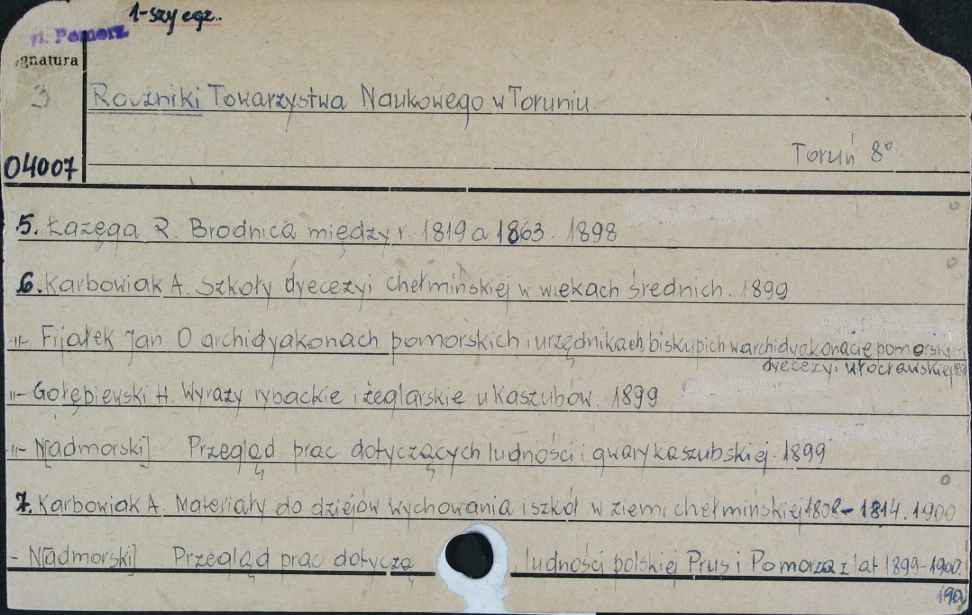 1-szy egz.
Pomorz.
gnatura
3
Roczniki Towarzystwa Naukowego w Toruniu.
Toruń 8°
04007
5. Łazęga R. Brodnica między r. 1819 a 1863. 1898
6. Karbowiak A. Szkoły dyecezyi chełmińskiej w wiekach średnich. 1899
-"- Fijałek Jan O archidyakonach pomorskich i urzędnikach biskupich w archidyakonacie pomorskim
dyecezyi włocławskiej
-"- Gołębiewski H. Wyrazy rybackie i żeglarskie u Kaszubów. 1899
-"- N[admorski] Przegląd prac dotyczących ludności i gwary kaszubskiej. 1899
7. Karbowiak A. Materiały do dziejów wychowania i szkół w ziemi chełmińskiej 1808-1814. 1900
- N[admorski] Przegląd prac dotyczą ludności polskiej Prus i Pomorza z lat 1899-1900.